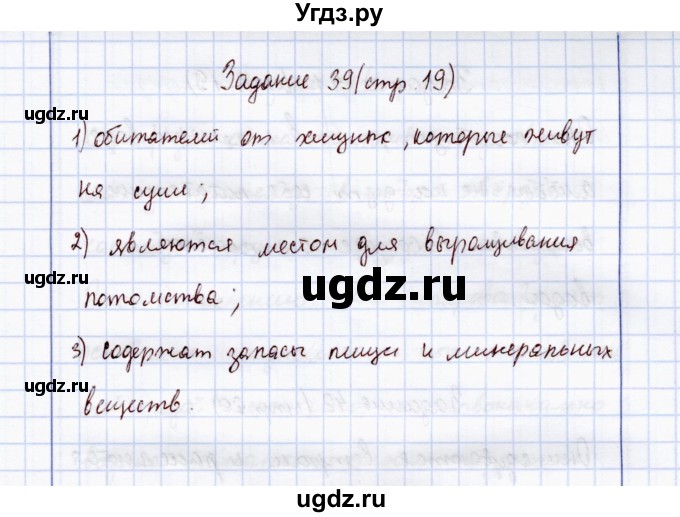 Угдз.ру
Задание 39 (стр. 19)
ugdz.ru
1) обитателей от хищник, которые живут
на суше;
ugdz.ru
2) являются местом для выращивания
ugdz.ru
потомства;
ugdz.ru
3) содержат запасы пищи и минеральных
ugdz.ru
веществ.
ugdz.ru